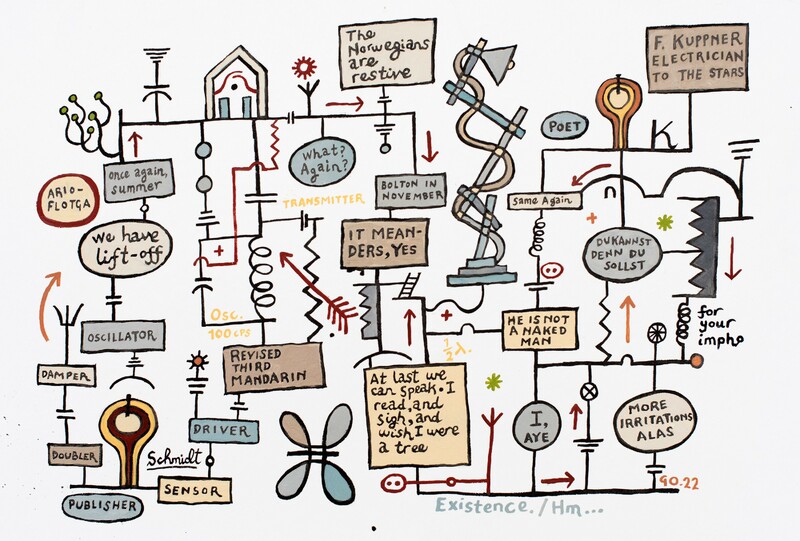 The
Norwegians
are
restive
F. KUPPNER
ELECTRICIAN
TO THE STARS
POET
K
What?
Again?
once again,
summer
ARIO-
FLOTGA
BOLTON IN
NOVEMBER
TRANSMITTER
Same Again
n
We have
lift-off
IT MEAN-
DERS, YES
DU KANNST
DENN DU
SOLLST
+
+
Osc.
100 CPS
+
HE IS NOT
A NAKED
MAN
for
your
impho
OSCILLATOR
½λ.
DAMPER
REVISED
THIRD
MANDARIN
At last we
can speak. I
read, and
sigh, and
wish I were
a tree
I,
AYE
MORE
IRRITATIONS
ALAS
DRIVER
DOUBLER
Schmidt
SENSOR
PUBLISHER
90.22
Existence./Hm...